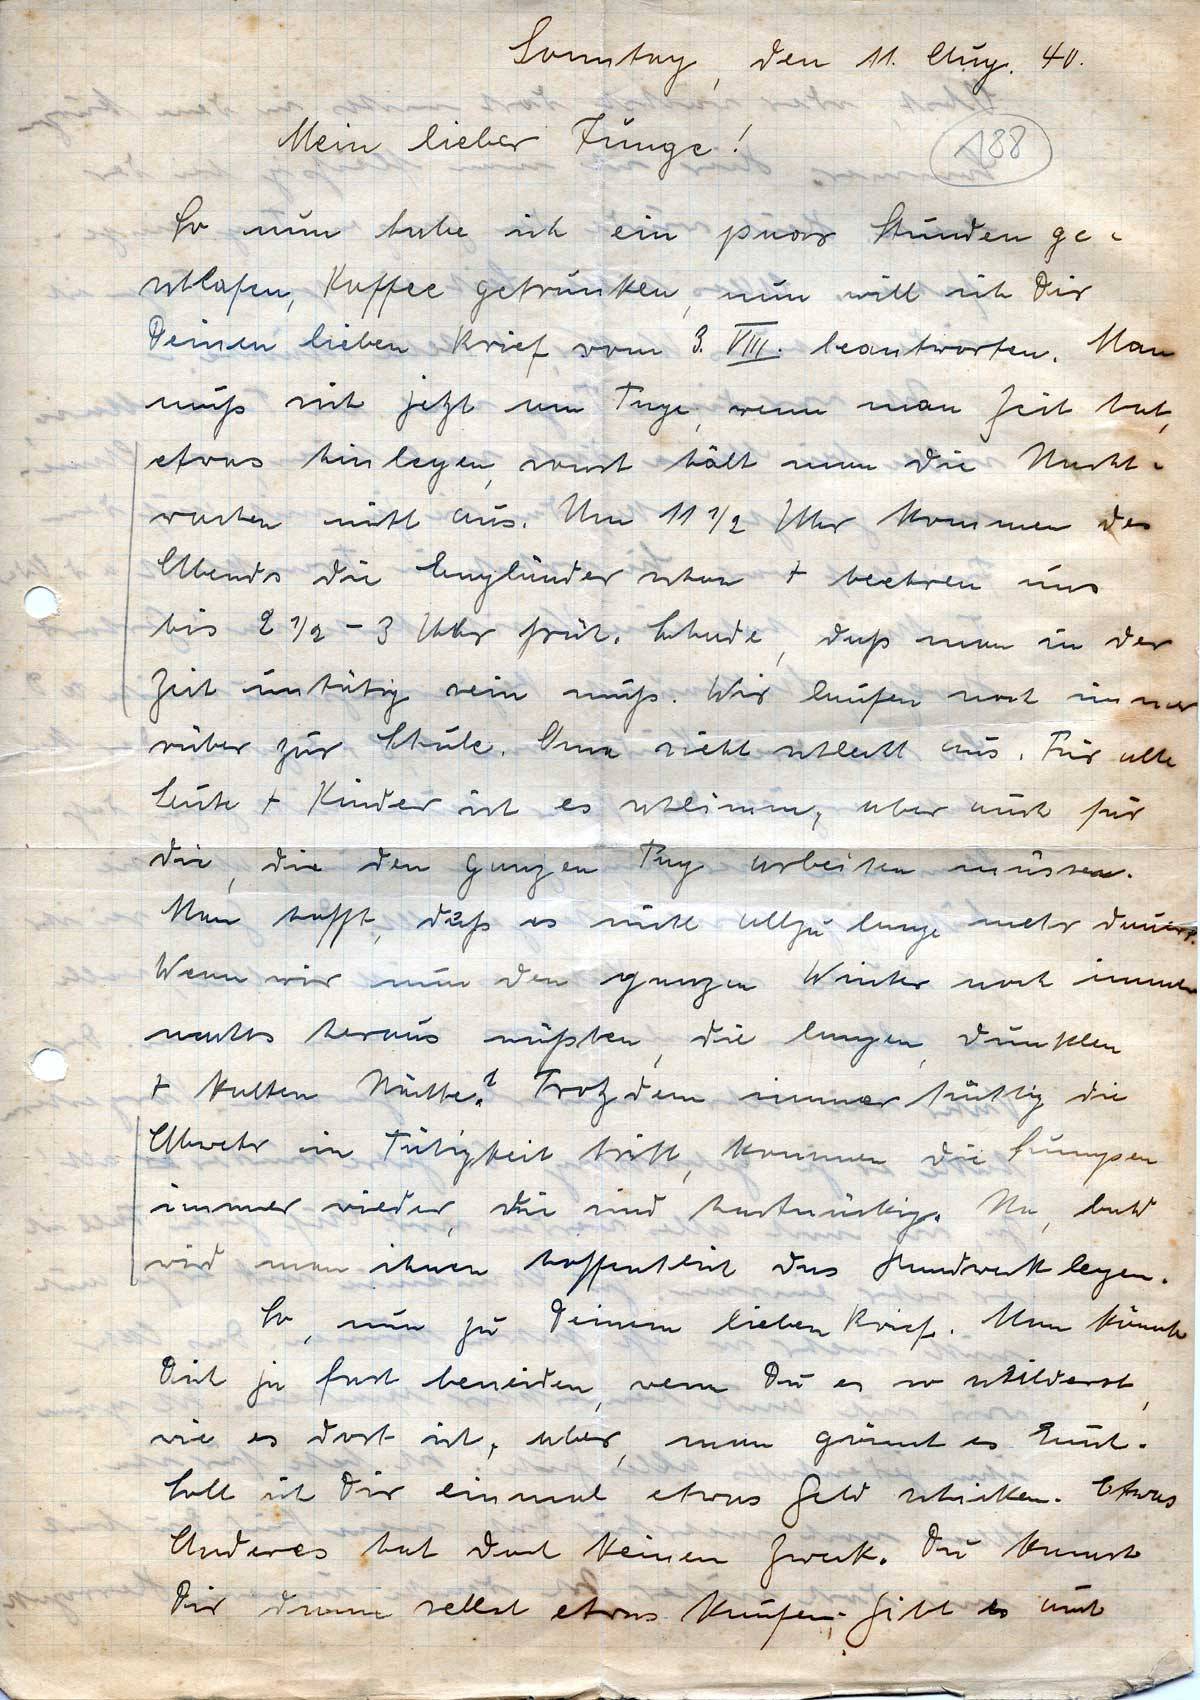 Sonntag, den 11. Aug. 40.
Mein lieber Junge!
188
So nun habe ich ein paar Stunden ge-
schlafen, Kaffee getrunken, nun will ich Dir
Deinen lieben Brief vom 3. VIII. beantworten. Man
muß sich jetzt am Tage, wenn man Zeit hat,
etwas hinlegen, sonst hält man die Nacht-
wachen nicht aus. Um 11 1/2 Uhr kommen des
Abends die Engländer schon + beehren uns
bis 2 1/2 - 3 Uhr früh. Schade, daß man in der
Zeit untätig sein muß. Wir laufen noch immer
rüber zur Schule. Oma sieht schlecht aus. Für alte
Leute + Kinder ist es schlimm, aber auch für
die, die den ganzen Tag arbeiten müssen.
Man hofft, daß es nicht allzu lange mehr dauert.
Wenn wir nun den ganzen Winter noch immer
nachts heraus müßten, die langen, dunklen
+ kalten Nächte? Trotzdem immer tüchtig die
Abwehr in Tätigkeit tritt, kommen die Lumpen
immer wieder, die sind hartnäckig. Na, bald
wird man ihnen hoffentlich das Handwerk legen.
So, nun zu Deinem lieben Brief. Man könnte
Dich ja fast beneiden, wenn Du es so schilderst,
wie es dort ist, aber, man gönnt es Euch.
Soll ich Dir einmal etwas Geld schicken. Etwas
Anderes hat doch keinen Zweck. Du kannst
Dir dann selbst etwas kaufen. Gibt es auch